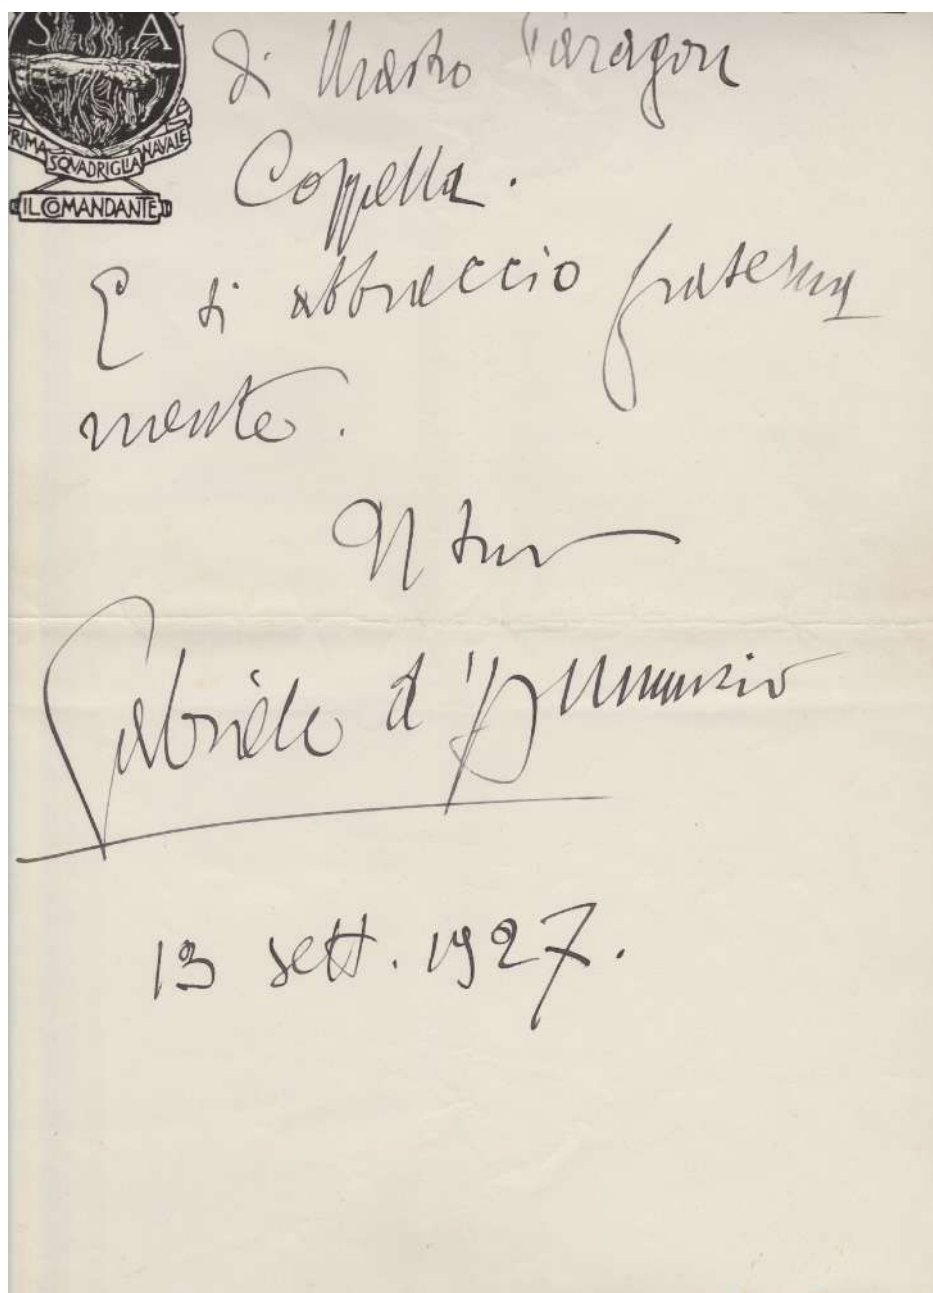 S A
PRIMA SQVADRIGLIA NAVALE
IL COMANDANTE
di Mastro Paragon
Coppella.
E ti abbraccio fraterna
mente.
Il tuo
Gabriele d'Annunzio
13 sett. 1927.